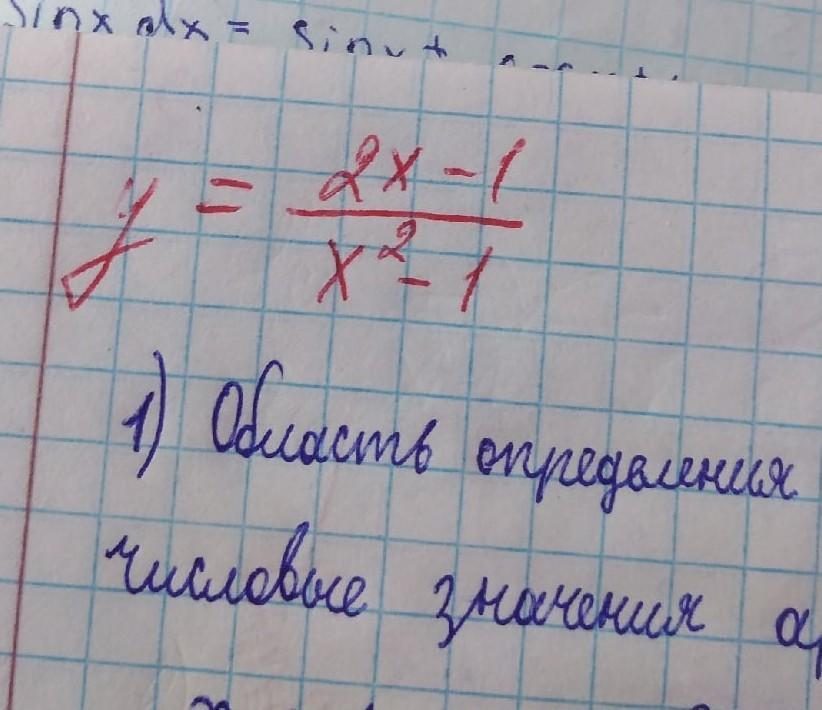 sinx dx = sin
y = \frac{2x - 1}{x^2 - 1}
1) Область определения
числовые значения